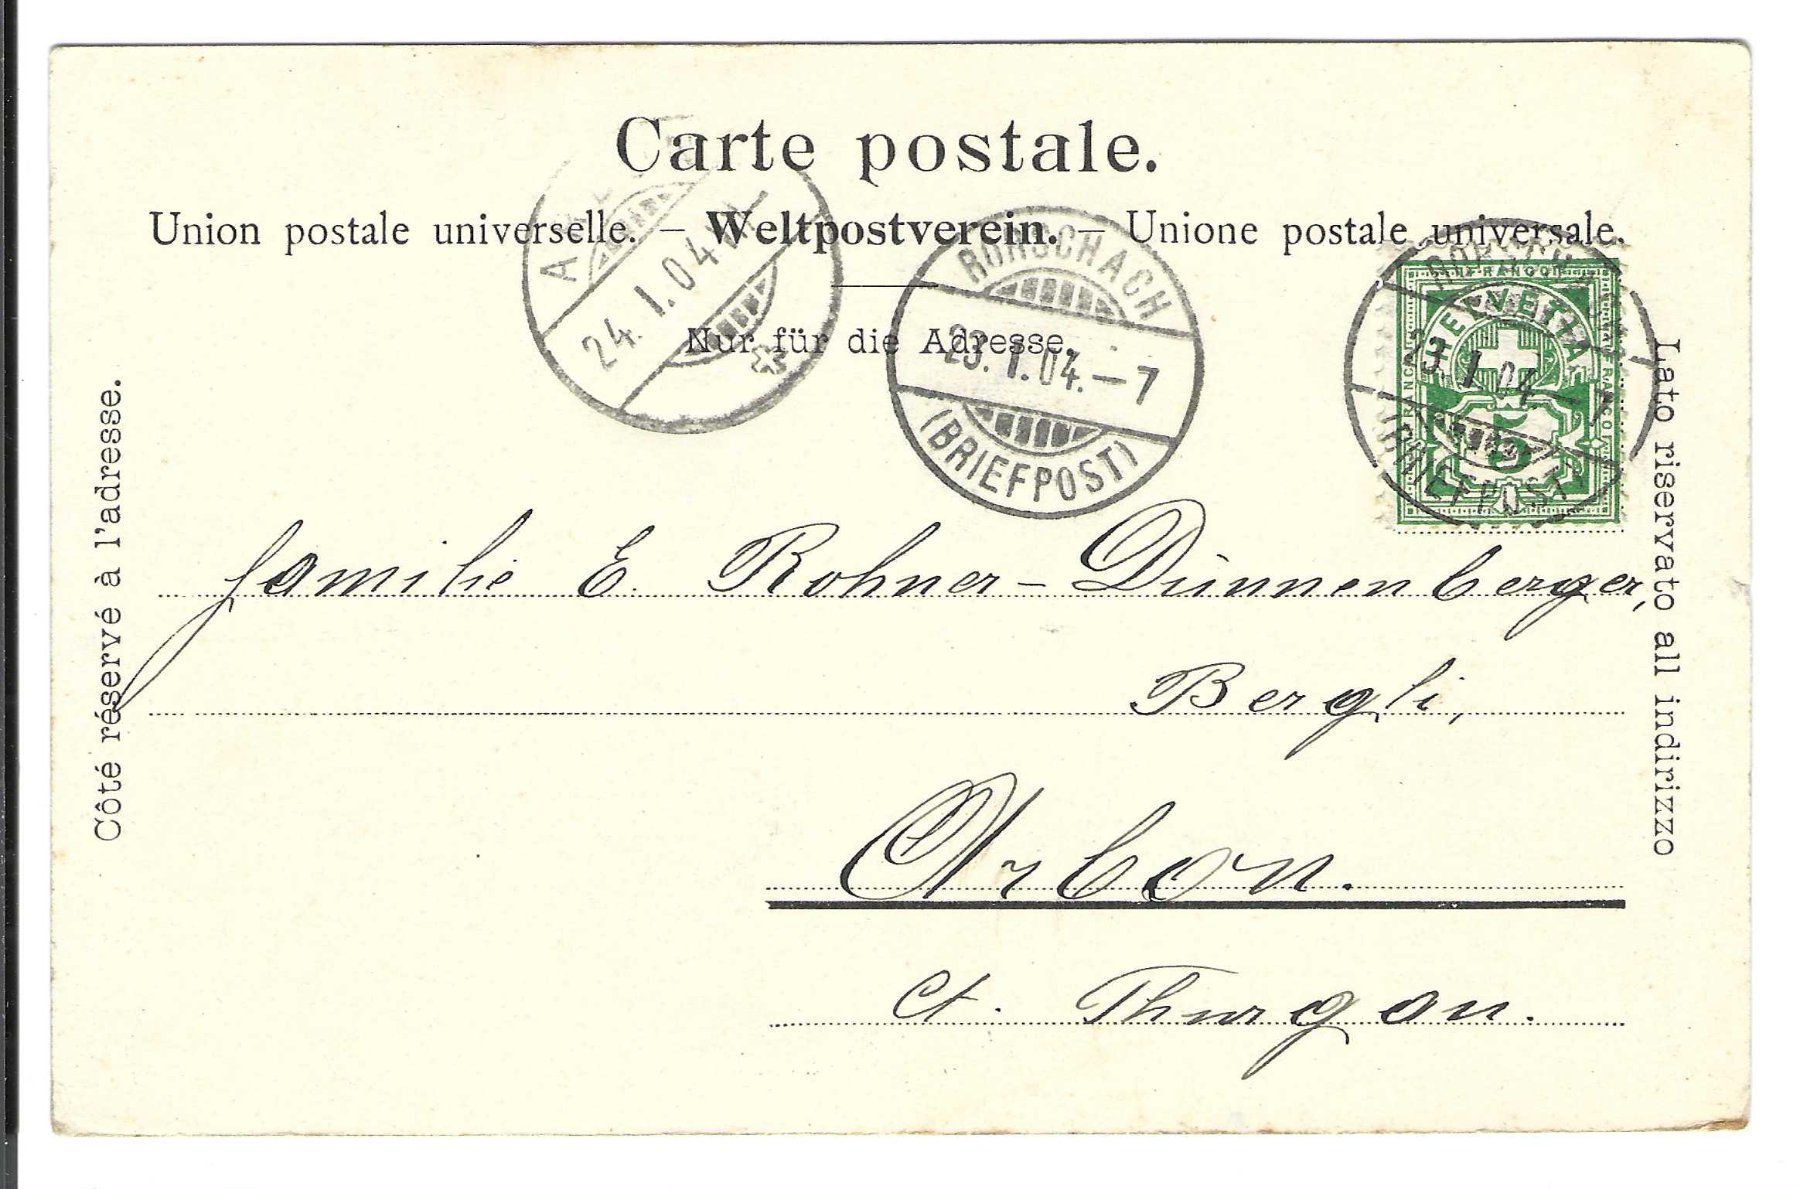 Carte postale.
Union postale universelle. – Weltpostverein. – Unione postale universale.
Nur für die Adresse.
24. I. 04
RORSCHACH
23. I. 04. – 7
(BRIEFPOST)
RORSCHACH
23. I. 04. – 7
(BRIEFPOST)
FRANCO
HELVETIA
5
Côté réservé à l'adresse.
Lato riservato all indirizzo
Familie E. Rohner-Dünnenberger,
Bergli,
Arbon.
Ct. Thurgau.